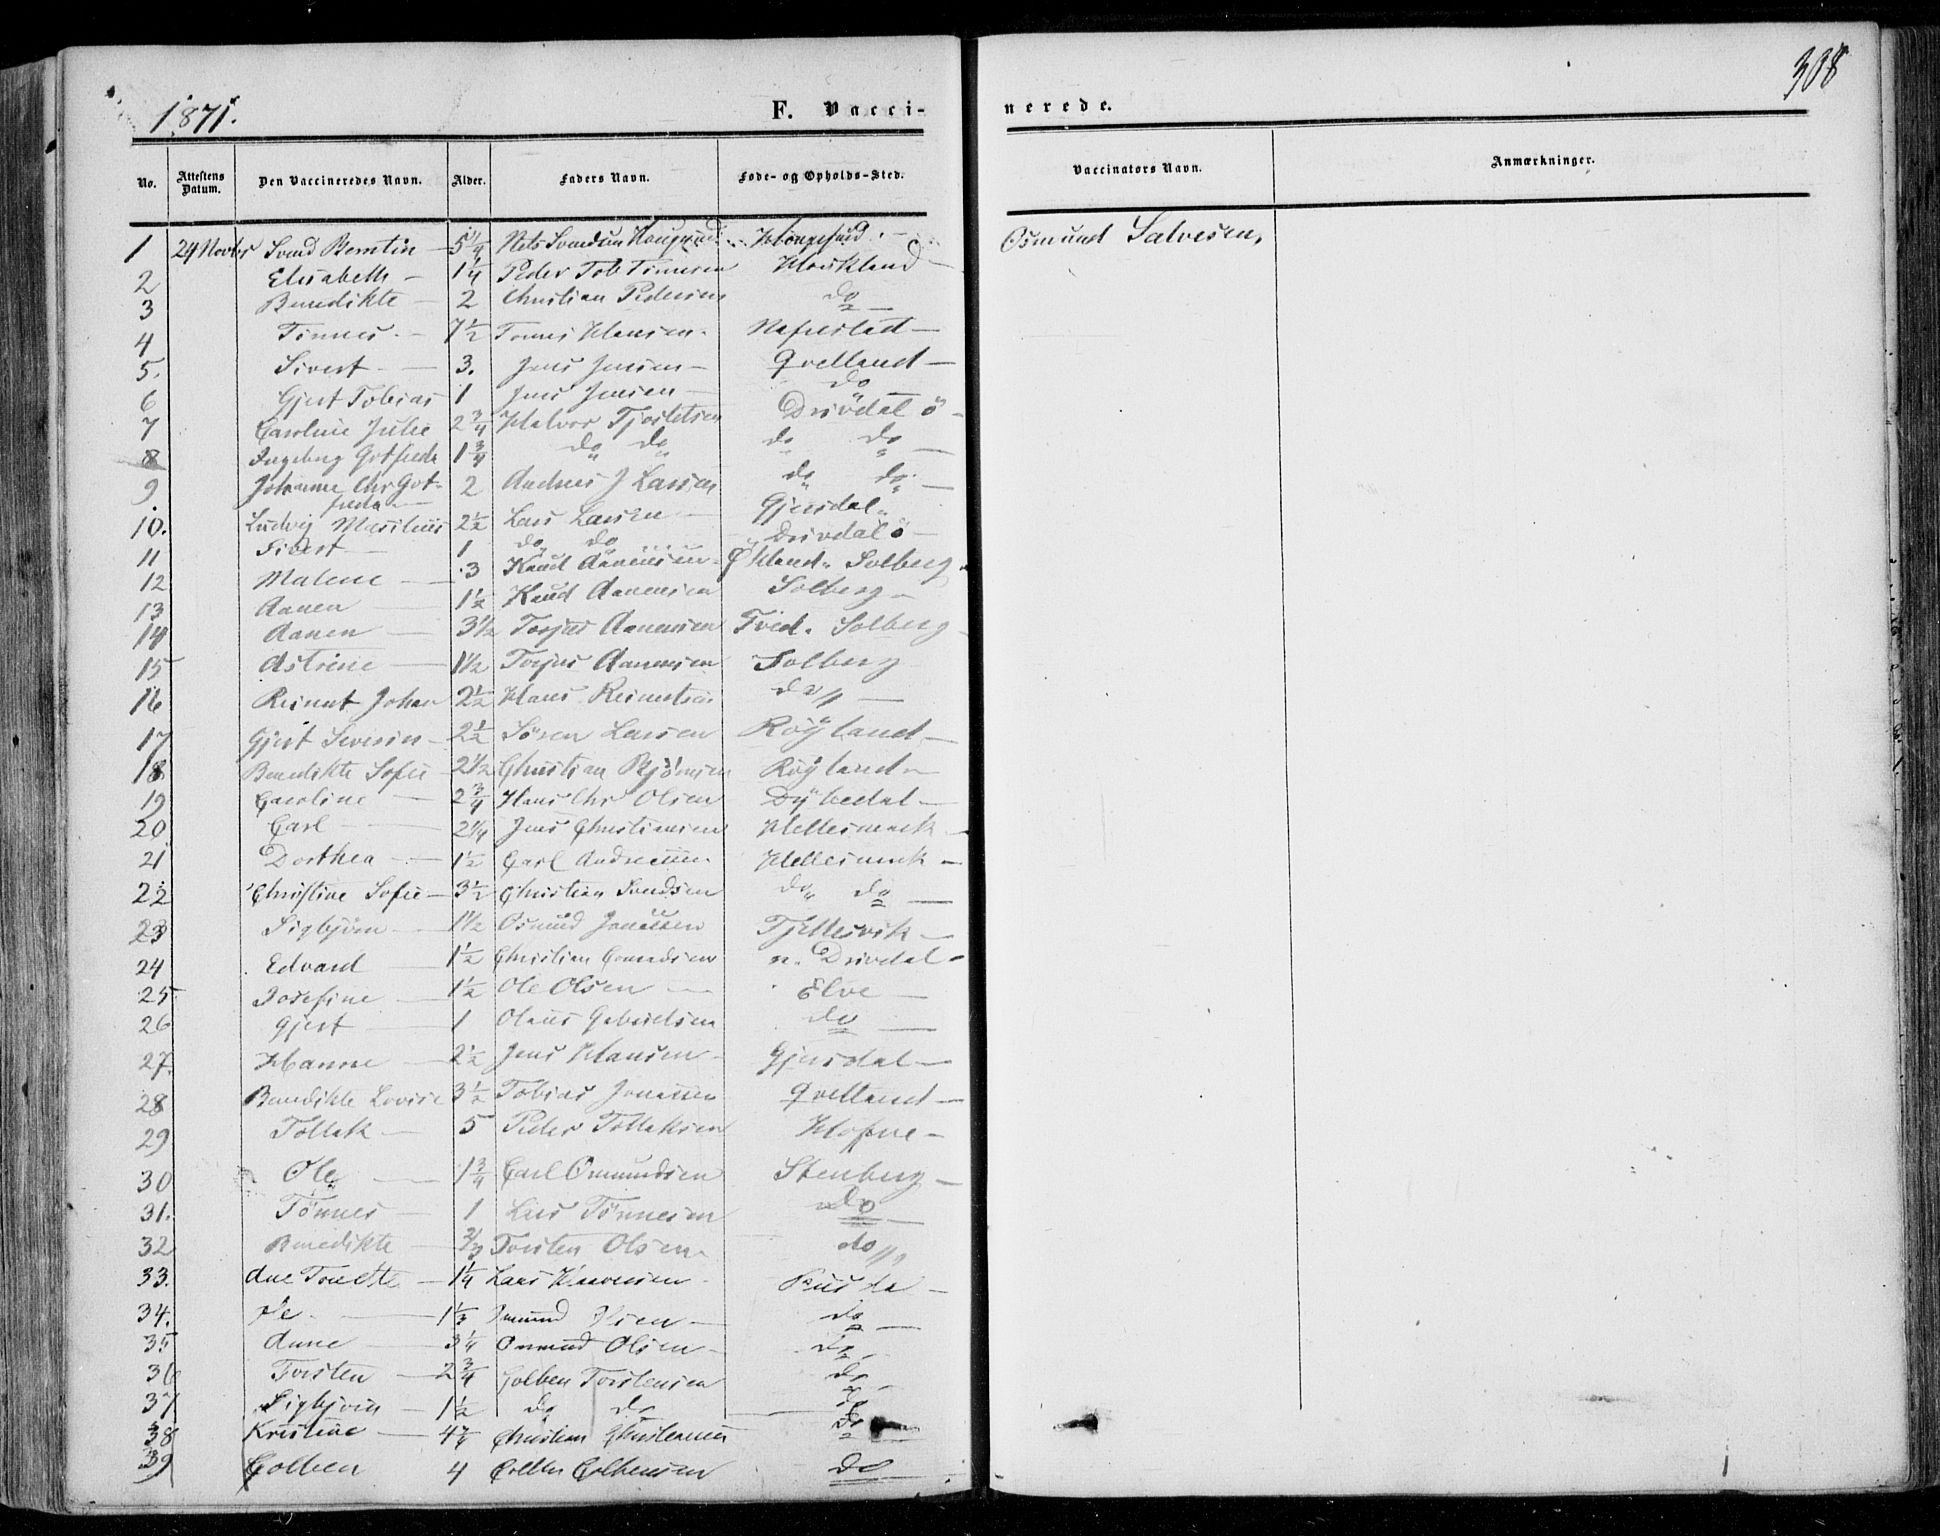 1871.
F. Vacci-
nerede.
308
No. Attestens Datum. Den Vaccineredes Navn. Alder. Faders Navn. Føde- og Opholds-Sted. Vaccinators Navn. Anmærkninger.
1 29 Novbr Svend Berntin — 5 1/4 Nils Svendsen Osmund Salvesen,
2 Elisabeth — 1 1/4 Peder Tob Tønnesen Houkland —
3 Benedikte — 2 Christian Pedersen do —
4 Tønnes — 7 1/2 Tønnes Hansen. —
5. Sivert — 3. Jens Jensen — Qvelland —
6 Gjert Tobias 1 Jens Jensen — do —
7 Caroline Julie 2 3/4 Halvor Tjostelsen Drivdal ö —
8 Ingeborg Gotfreda 1 3/4 do do do do —
9. Johanne Chr Got- 2 Andreas J Larsen do do —
freda —
10. Ludvig Masilius 2 1/2 Lars Larsen — Gjersdal
11 Sivert — 1 do do Drivdal ö —
12 Malene — 3 Knud Aanensen Økland Solberg
13 Aanen — 1 1/2 Knud Aanensen Solberg —
14 Aanen — 3 1/2 Torjus Aanensen Tved. Solberg —
15 Astrine — 1 1/2 Torjus Aanensen Solberg
16 Reinert Johan 2 1/2 Hans Reinertsen do —
17 Gjert Severin — 2 1/2 Sören Larsen Röyland —
18 Benedikte Sofie — 2 1/2 Christian Bjørnsen Röyland —
19 Caroline — 2 3/4 Hans Chr Olsen Dybedal —
20 Carl — 2 1/4 Jens Christiansen Hellesmark —
21 Dorthea — 1 1/2 Carl Andreasen Hellesmark —
22 Christine Sofie — 3 1/2 Christian Svendsen do do —
23 Sigbjörn — 1 1/2 Osmund Jonassen Tjellesvik —
24 Edvard — 1 1/2 Christian n. Drivdal —
25 Josefine — 1 1/2 Ole Olsen — Elve —
26 Gjert — 1 Olaus Gabrielsen do —
27. Hanne — 2 1/2 Jens Hansen — Gjersdal —
28 Benedikte Lovise 3 1/2 Tobias Jonassen Qvelland —
29 Tollak — 5 Peder Tollaksen
30 Ole — 1 3/4 Carl Osmundsen Stenberg —
31. Tönnes — 1 Lars Tönnesen do —
32 Benedikte — 2/3 Torsten Olsen — do
33. Ane Tonette — 1 1/4 Lars
34. Ole — 1 1/3 Osmund Olsen — do —
35 Anne — 3 1/4 Osmund Olsen — do —
36 Torsten — 2 3/4 Golben Torstensen do —
37 Sigbjörn — 1 1/2 do do — do
38 Kristine — Christian Christensen do —
39 Colben 4 Colben Colbensen do —